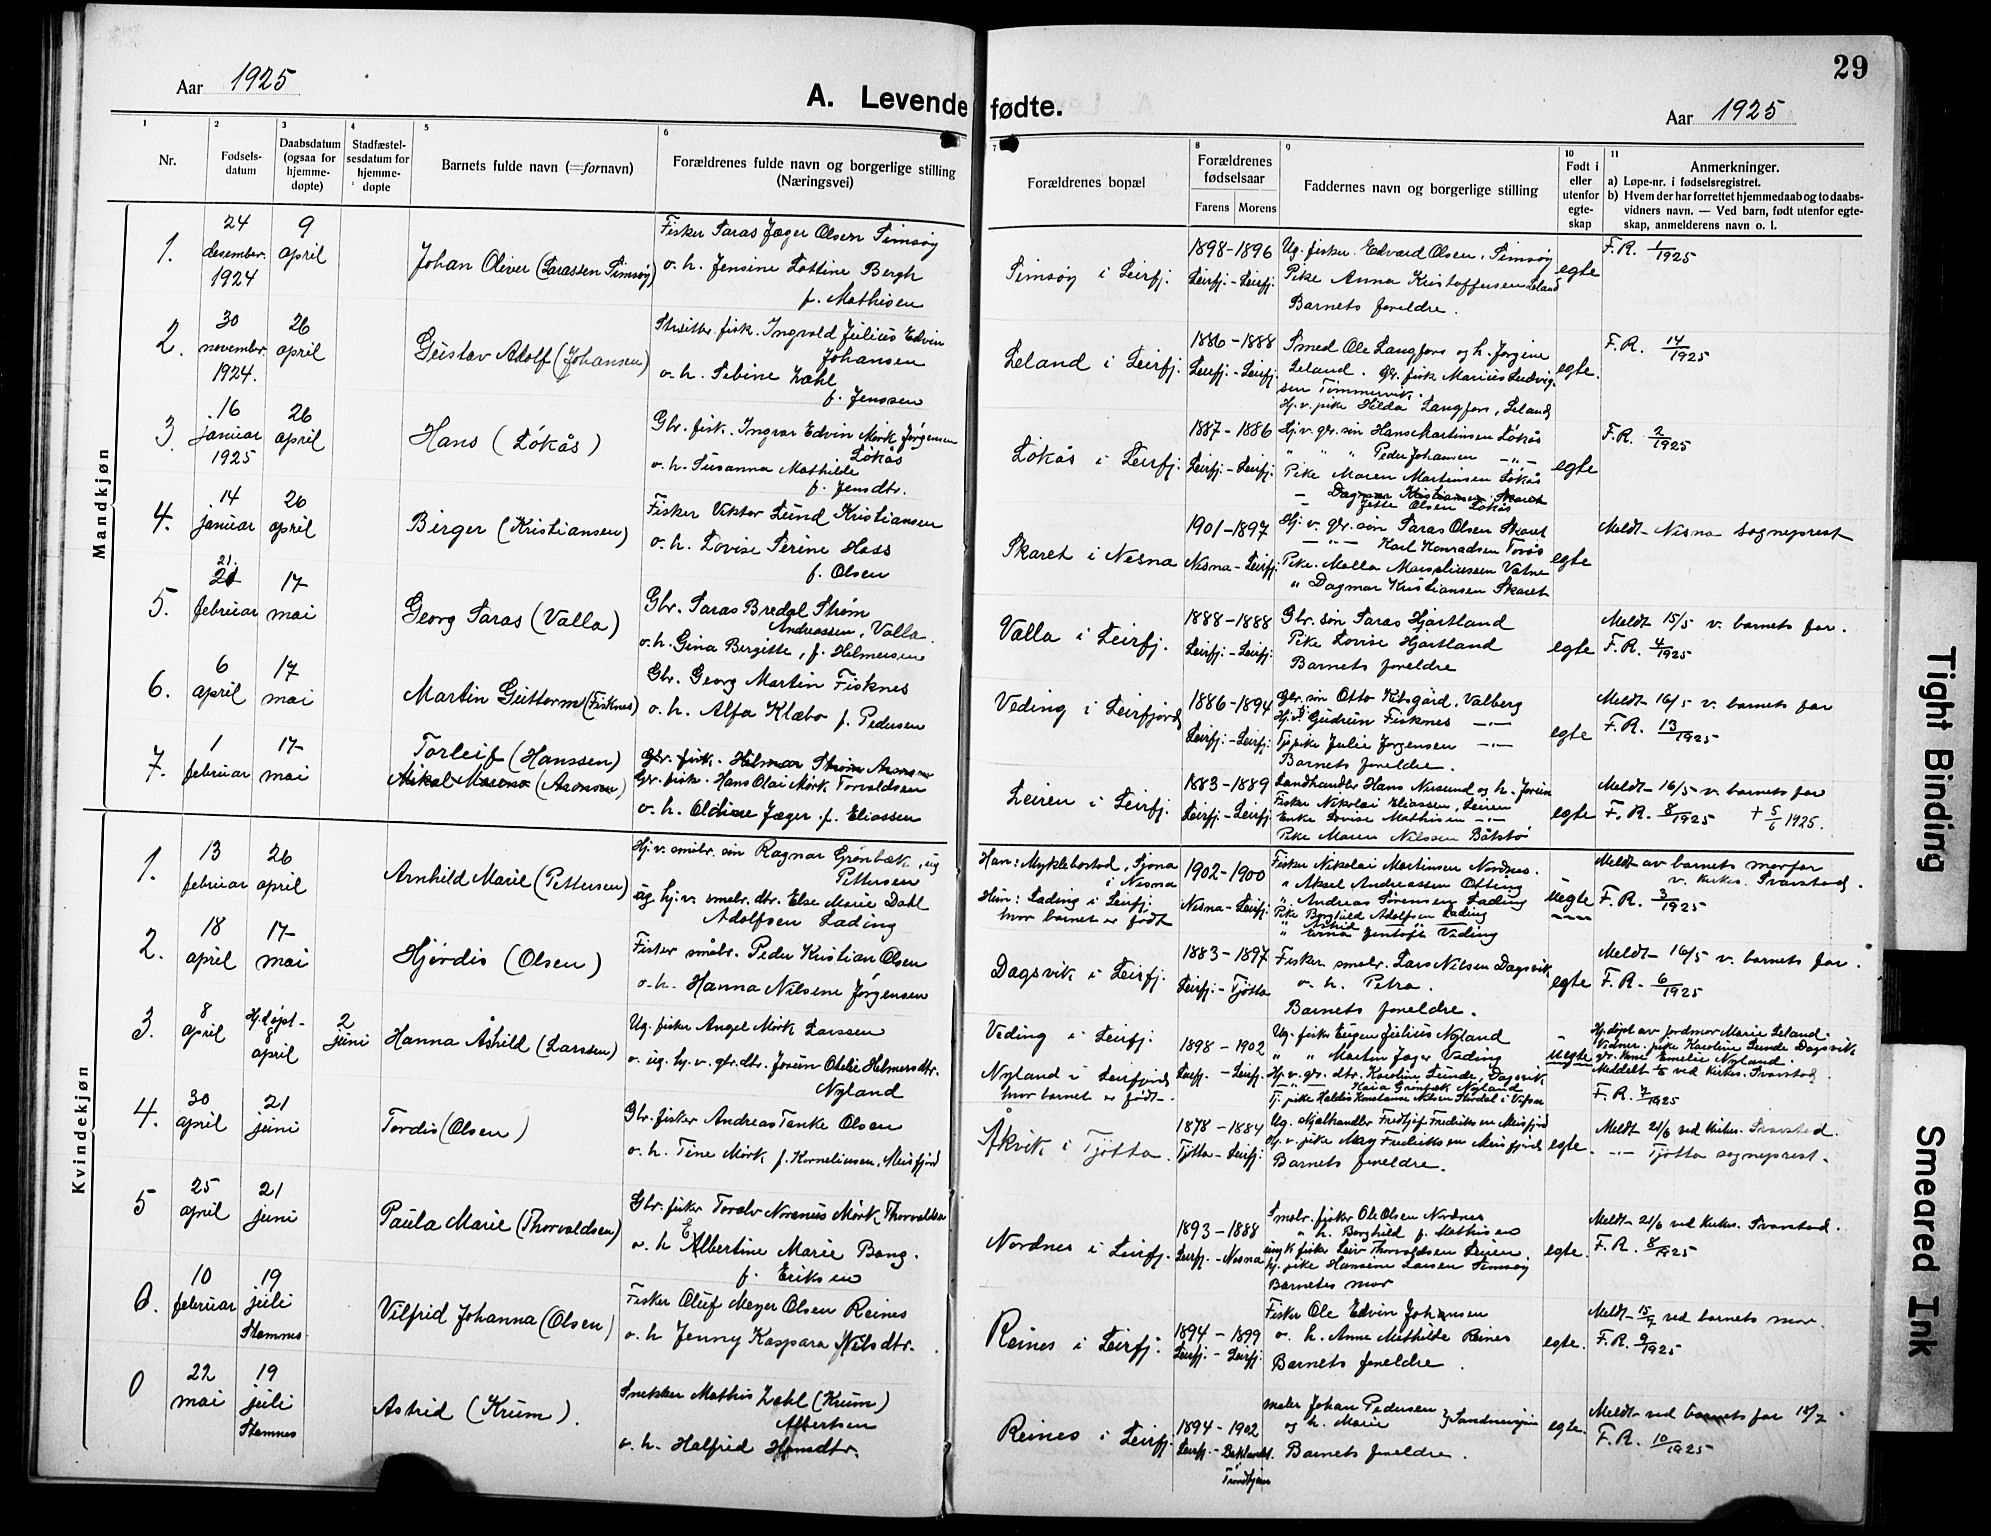 29
Aar 1925
A. Levende fødte.
Aar 1925
1 Nr.
2 Fødsels-datum
3 Daabsdatum (ogsaa for hjemme-døpte)
4 Stadfæstel-sesdatum for hjemme-døpte
5 Barnets fulde navn (=fornavn)
6 Forældrenes fulde navn og borgerlige stilling (Næringsvei)
7 Forældrenes bopæl
8 Forældrenes fødselsaar
Farens Morens
9 Faddernes navn og borgerlige stilling
10 Født i eller utenfor egte-skap
11 Anmerkninger.
a) Løpe-nr. i fødselsregistret.
b) Hvem der har forrettet hjemmedaab og to daabs-vidners navn. — Ved barn, født utenfor egte-skap, anmelderens navn o. l.
Mandkjøn
1. 24 desember 1924
9 april
Johan Oliver (Larassen Simsøy)
Fisker Laras Jæger Olsen Simsøy
o. h. Jensine Lottine Bergh
f. Mathisen
Simsøy i Leirfj.
1898 - 1896
Leirfj. - Leirfj.
Ug. fisker Edvard Olsen, Simsøy
Pike Anna Kristoffersen Leland
Barnets foreldre.
egte
F.R. 1/1925
2. 30 novembr. 1924.
26 april
Gustav Adolf (Johansen)
fisk. Ingvald Julius Edvin
Johansen
o. h. Sebine Zahl
f. Jenssen
Leland i Leirfj.
1886 - 1888
Leirfj. - Leirfj.
Smed Ole Langfors og h. Jørgine
Leland. Gbr. fisk Marius Ludvig-
sen Tømmervik.
Hj. v. pike Hilda Langfors, Leland
egte.
F.R. 14/1925
3. 16 januar 1925
26 april
Hans (Løkås)
Gbr. fisk. Ingvar Edvin Mørk Jørgensen
Løkås
o. h. Susanna Mathilde
f. Jensdtr.
Løkås i Leirfj.
1887 - 1886
Leirfj. - Leirfj.
Hj. v. gbr. søn Hans Martinsen Løkås
" " " Peder Johansen -"-
Pike Maren Martinsen Løkås
- Dagmar Kristiansen Skaret
Jette Olsen Løkås
egte
F.R. 2/1925
4. 14 januar
26 april
Birger (Kristiansen)
Fisker Viktor Lund Kristiansen
o. h. Lovise Serine Hass
f. Olsen
Skaret i Nesna
1901 - 1897
Nesna - Leirfj.
Hj. v. gbr. søn Laras Olsen Skaret
-"- Karl Konradsen Torås
Pike. Malla Marseliussen Vatne
" Dagmar Kristiansen Skaret
egte
Meldt Nesna sogneprest
5. 21. 21 februar
17 mai
Georg Laras (Valla)
Gbr. Laras Bredal Strøm
Andreassen, Valla.
o. h. Gina Bergitte, f. Helmersen
Valla i Leirfj.
1888 - 1888
Leirfj. - Leirfj.
Gbr. søn Laras Hjartland
Pike Lovise Hjartland
Barnets foreldre
egte
Meldt 15/5 v. barnets far.
F.R. 4/1925
6. 6 april
17 mai
Martin Guttorm (Fisknes)
Gbr. Georg Martin Fisknes
o. h. Alfa Klæbo f. Pedersen
Veding i Leirfjord
1886 - 1894
Leirfj. - Leirfj.
Gbr. søn Otto Kibsgård, Valberg
Gudrun Fisknes -"-
Tj. pike Julie Jørgensen -"-
Barnets foreldre.
egte
Meldt 16/5 v. barnets far
F.R. 13/1925
7. 1 februar
17 mai
Torleif (Hanssen)
(Aronsen)
Gbr. fisk. Hilmar Strøm
Gbr. fisker Hans Olai Mørk Torvaldsen
o. h. Oldine Jæger f. Eliassen
Leiren i Leirfj.
1883 - 1889
Leirfj. - Leirfj.
Landhandler Hans Nesund og h. Jorun
Fisker Nikolai Eliassen, Leiren
Enke Lovise Mathisen -"-
Pike Maren Nilssen Båtstø
egte
Meldt 16/5 v. barnets far
F.R. 8/1925 + 5/6 1925.
Kvindekjøn
1. 13 februar
26 april
Arnhild Marie (Pettersen)
Hj. v. smbr. søn Ragnar Grønbæk, ug
Pettersen
ug. hj. v. smbr. dtr. Else Marie Dahl
Adolfsen Lading
Han: Myklebostad, Sjona
i Nesna
Hun: Lading i Leirfj.
hvor barnet er født
1902 - 1900
Nesna - Leirfj.
Fisker Nikolai Martinsen Nordnes.
" Aksel Andreassen Otting
" Andreas Sørensen Lading
Pike Borghild Adolfsen Lading
Astrid
" Erna Jentoft Veding
uegte
Meldt av barnets morfar
v. kirkes. Svarstad.
F.R. 3/1925
2. 18 april
17 mai
Hjørdis (Olsen)
Fisker småbr. Peder Kristian Olsen
o. h. Hanna Nilsine Jørgensen
Dagsvik i Leirfj.
1883 - 1897
Leirfj. - Tjøtta
Fisker smbr. Lars Nilsen Dagsvik
o. h. Petra.
Barnets foreldre.
egte
Meldt 16/5 v. barnets far.
F.R. 6/1925
3. 8 april
Hj. døpt 8 april
2 juni
Hanna Åshild (Larssen)
Ug. fisker Angel Mørk Larssen
o. ug. hj. v. gbr. dtr. Jorun Odelie Helmersdtr.
Nyland
Veding i Leirfj.
Nyland i Leirfjord
hvor barnet er født.
1898 - 1902
Leirfj. - Leirfj.
Ug. fisker Eugen Julius Nyland
" " Martin Jæger Veding
Hj. v. gbr. dtr. Karoline Lunde, Dagsvik
Kaia Grønbæk Nyland
Tj. pike Haldis Konstanse Nilsen Stordal i Vefsn
uegte
Hj. døpt av jordmor Marie Leland.
Vidner: pike Karoline Lunde Dagsvik
gbr. kone Emelie Nyland.
Meddelt ved kirkes. Svarstad.
F.R. 7/1925
4. 30 april
21 juni
Tordis (Olsen)
Gbr. fisker Andreas Tanke Olsen
o. h. Tine Mørk f. Korneliussen, Meisfjord
Åkvik i Tjøtta
1878 - 1884
Tjøtta - Leirfj.
Ug. Fredtjof Fredriksen Meisfjord
Hj. v. pike May Fredriksen Meisfjord
Barnets foreldre.
egte.
Meldt 21/6 ved kirkes. Svarstad.
-"- Tjøtta sogneprest.
5 25 april
21 juni
Paula Marie (Thorvaldsen)
Gbr. fisker Toralv Norenus Mørk Thorvaldsen
o. h Albertine Marie Bang.
f. Eriksen
Nordnes i Leirfj.
1893 - 1888
Leirfj. - Nesna
Smbr. fisker Ole Olsen Nordnes
" h. Borghild f. Mathisen
ungk. fisker Leiv Thorvaldsen Leiren.
hj. pike Hansine Larsen Simsøy
Barnets mor
egte.
Meldt 21/6 ved kirkes. Svarstad.
F.R. 8/1925
6. 10 februar
19 juli
Stamnes
Vilfrid Johanna (Olsen)
Fisker Oluf Meyer Olsen Reines
o. h Jenny Kaspara Nilsdtr.
Reines i Leirfj.
1894 - 1899
Leirfj. - Leirfj.
Fisker Ole Edvin Johansen
o. h. Anne Mathilde Reines
Barnets foreldre.
egte.
Meldt 15/7 ved barnets mor.
F.R. 9/1925
0 22 mai
19 juli
Stamnes
Astrid (Krum).
Snekker Mathis Zahl (Krum)
Albertsen
o. h. Halfrid Hansdtr.
Reines i Leirfj.
1894 - 1902
Leirfj. -
Trondhjem
maler Johan Pedersen
og h. Marie
Barnets foreldre.
egte.
Meldt ved barnets far 18/7.
F.R. 10/1925
Tight Binding
Smeared Ink